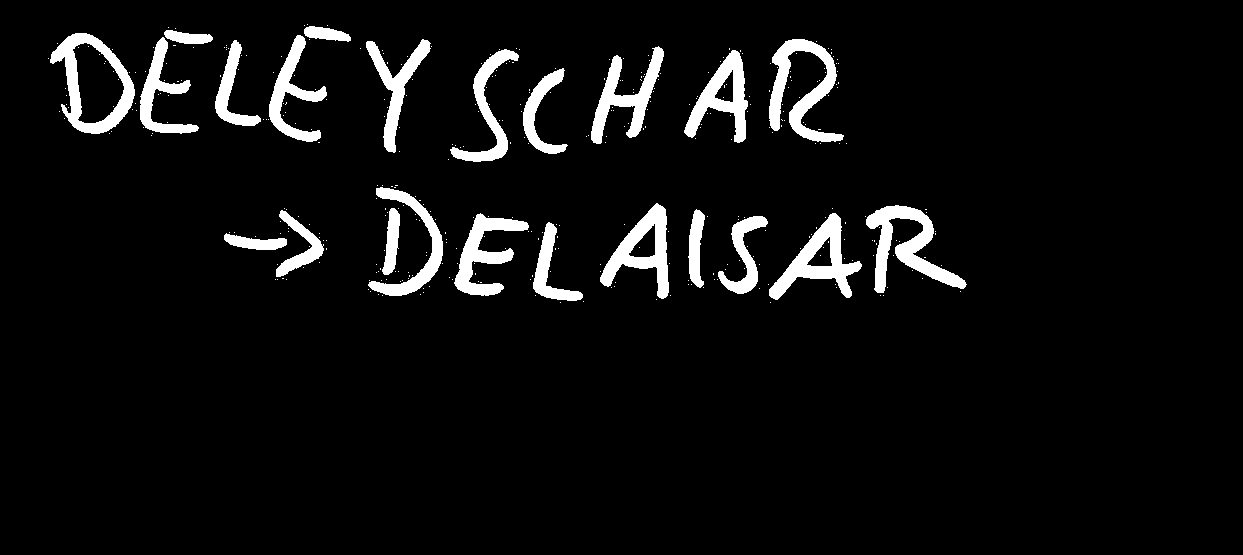 DELEYSCHAR
→ DELAISAR